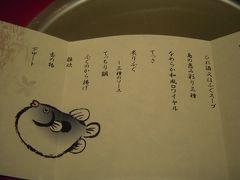 ひれ酒又はふぐスープ
鳥の恵み彩り三種
なめらか和風ロワイヤル
てっさ
炙りふぐ
ー三種のソース
てっちり鍋
ふぐのから揚げ
雑炊
香の物
デザート